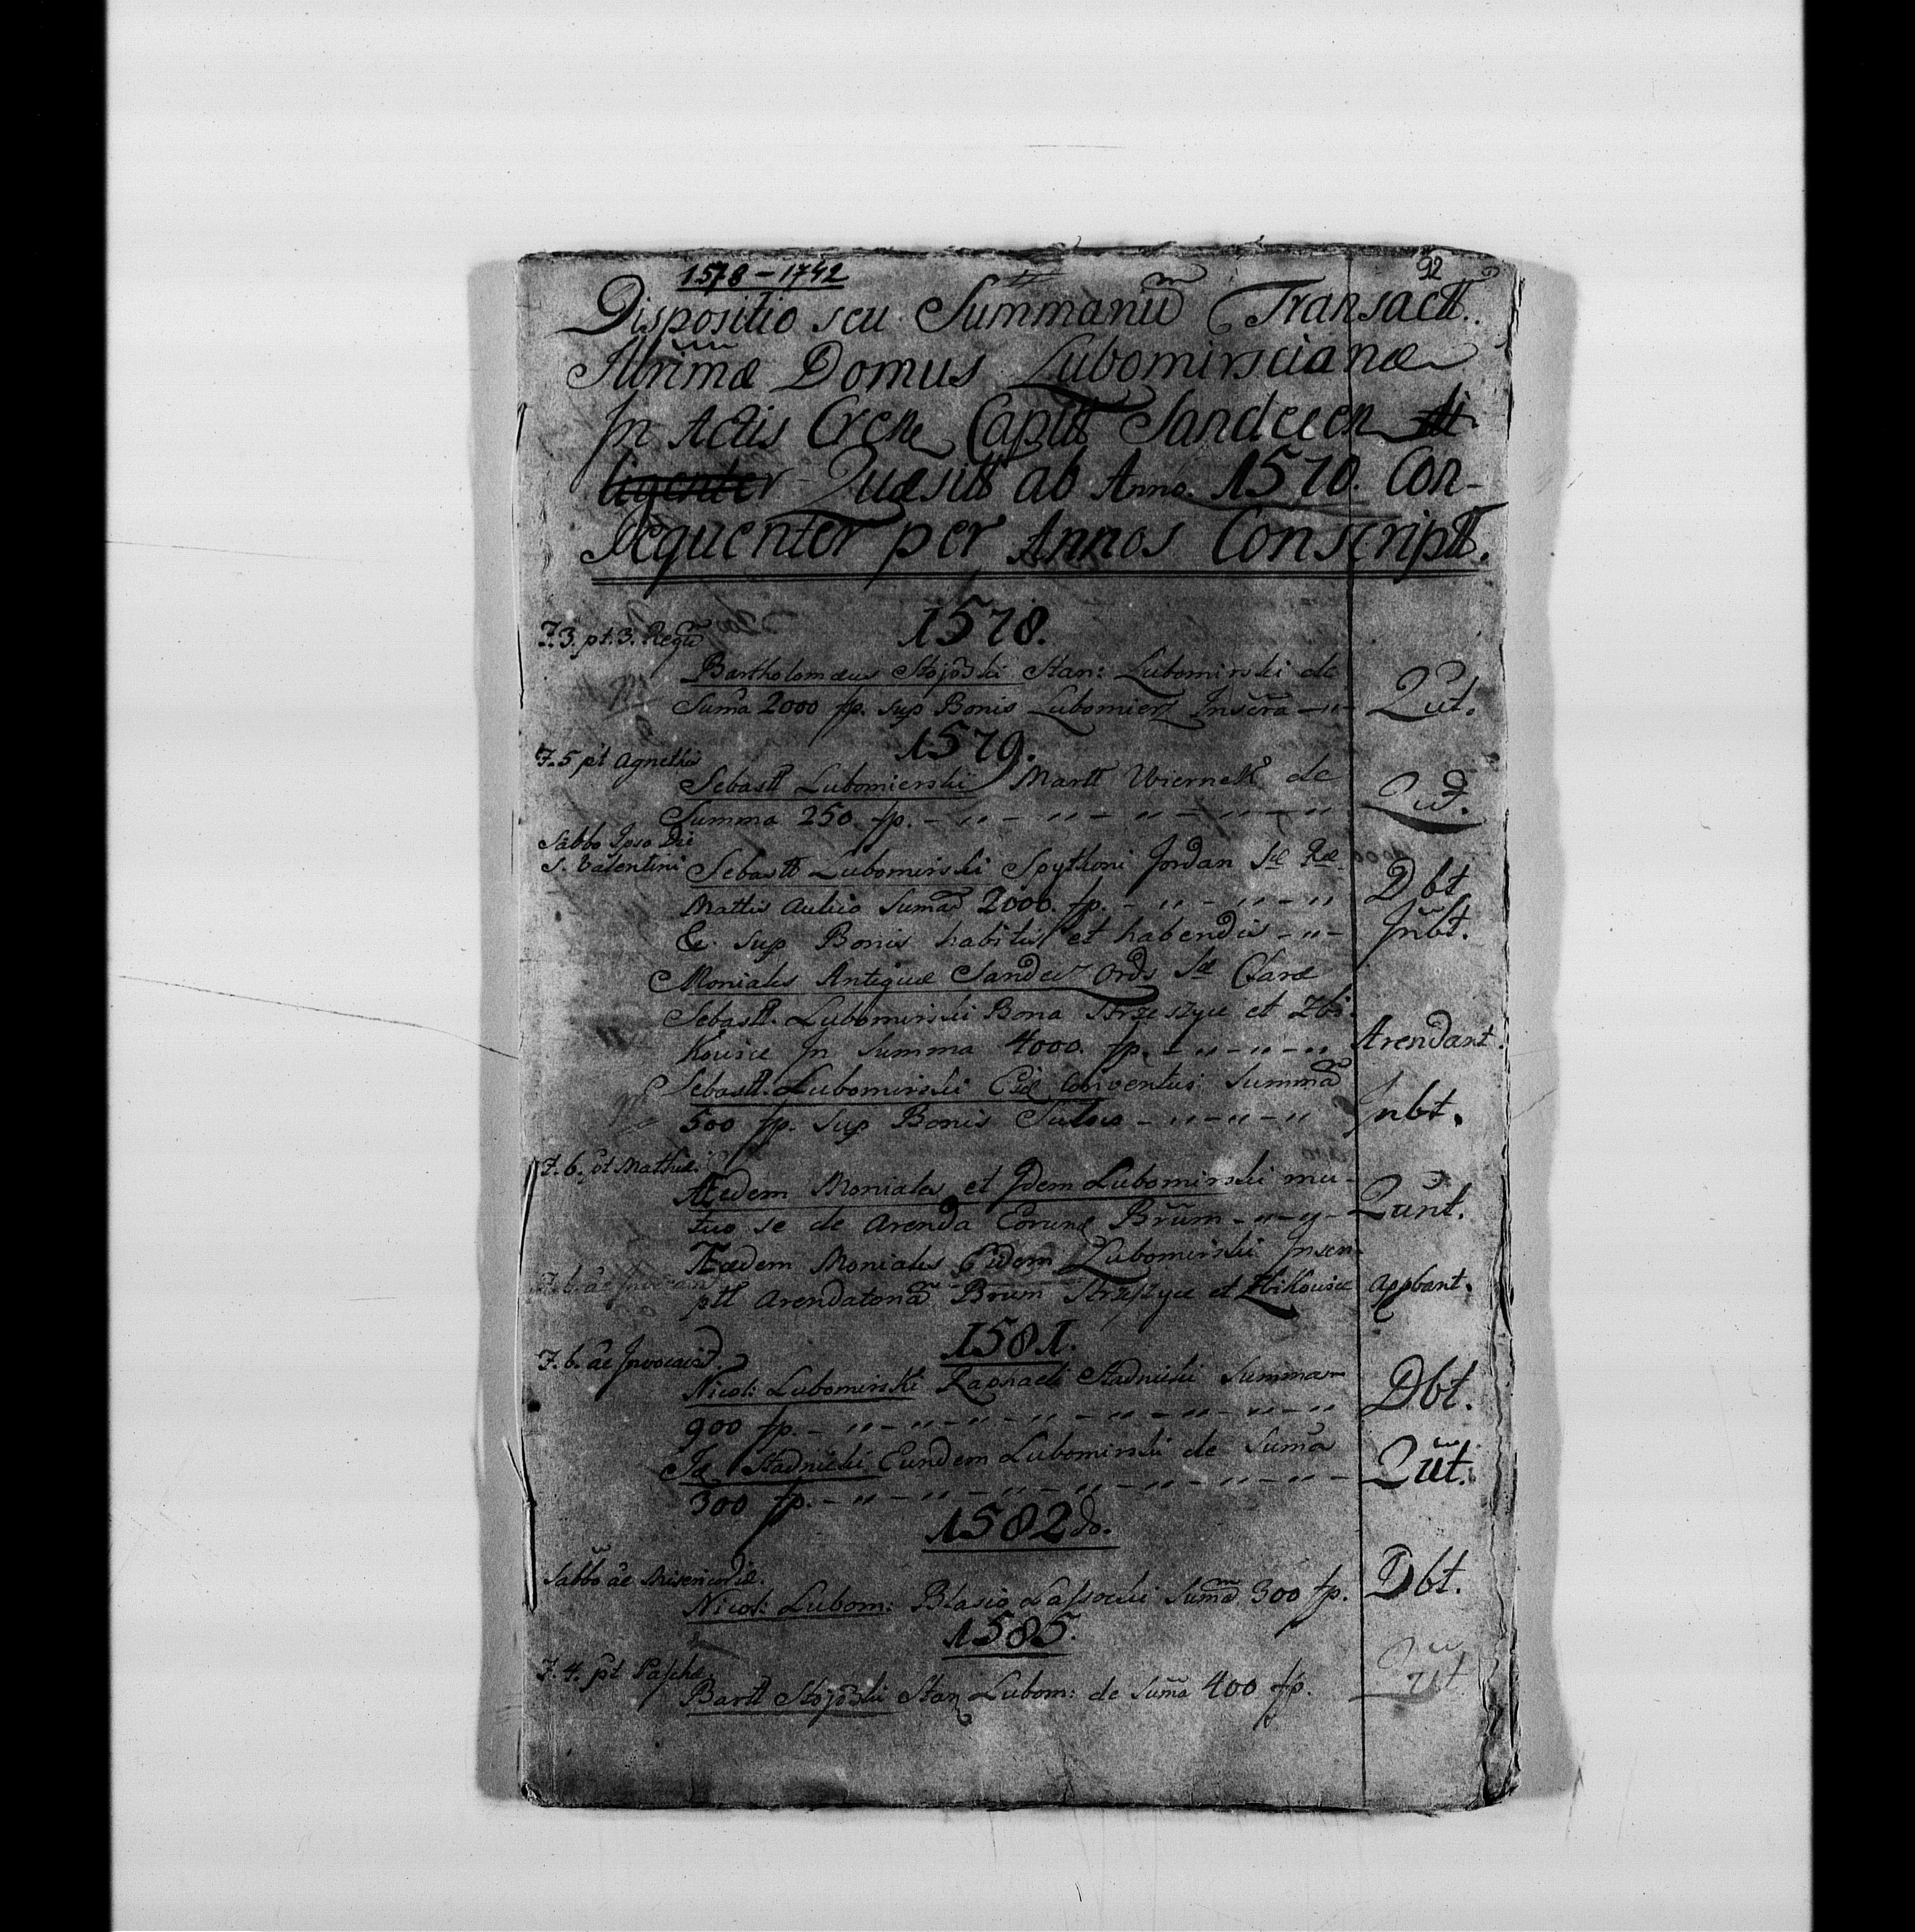 1578 – 1742
92
Dispositio seu Summariũ Transactt.
Illrĩmæ Domus Lubomirsciana
In Actis Cren Captt Sandecen
Quæsitt ab Anno. 1570. Con-
sequenter per Annos Conscriptt.
1578.
F. 3. pt. 3. Regũ
Bartholomæus Stojoski Stan: Lubomirski de
Suma 2000 fp. sup Bonis Lubomierz Inscra Qut.
1579.
F. 5 pt Agnethis
Sebastt Lubomierski Martt Wiernek de
Summa 250. fp. Qut.
Sabbo Ipso Die
S. Valentini
Sebastt Lubomirski Spythoni Jordan Sæ Ræ
Mattis Aulico Sumã 2000. fp. Dbt
& sup Bonis habitis et habendis Inbt.
Moniales Antiquæ Sandecz Ords Sæ Claræ
Sebastt. Lubomirski Bona Strzeszyce et Zbi
kowice In Summa 4000. fp. Arendant.
Sebastt. Lubomirski Conventui Summã
500 fp. sup Bonis Inbt.
F. 6. pt Mathiæ
Eædem Moniales et Idem Lubomirski mu-
tuo se de Arenda Eorund Brum Qunt.
Eædem Moniales Eidem Lubomirski Inscri
ptt Arendatoriã Brum Strzeszyce et Zbikowice Appbant.
1581.
F. 6. ae Invocavit.
Nicol: Lubomirski Stadnicki Summam
900 fp. Dbt.
Id Stadnicki Eundem Lubomirski de Suma
300 fp. Qut.
1582do.
Sabbo ae Misericordiæ.
Nicol: Lubom: Blasio Lassocki Sumã 300 fp. Dbt.
1585.
F. 4. pt Paschæ
Bartt Stojoski Stan Lubom: de Suma 400 fp. Qut